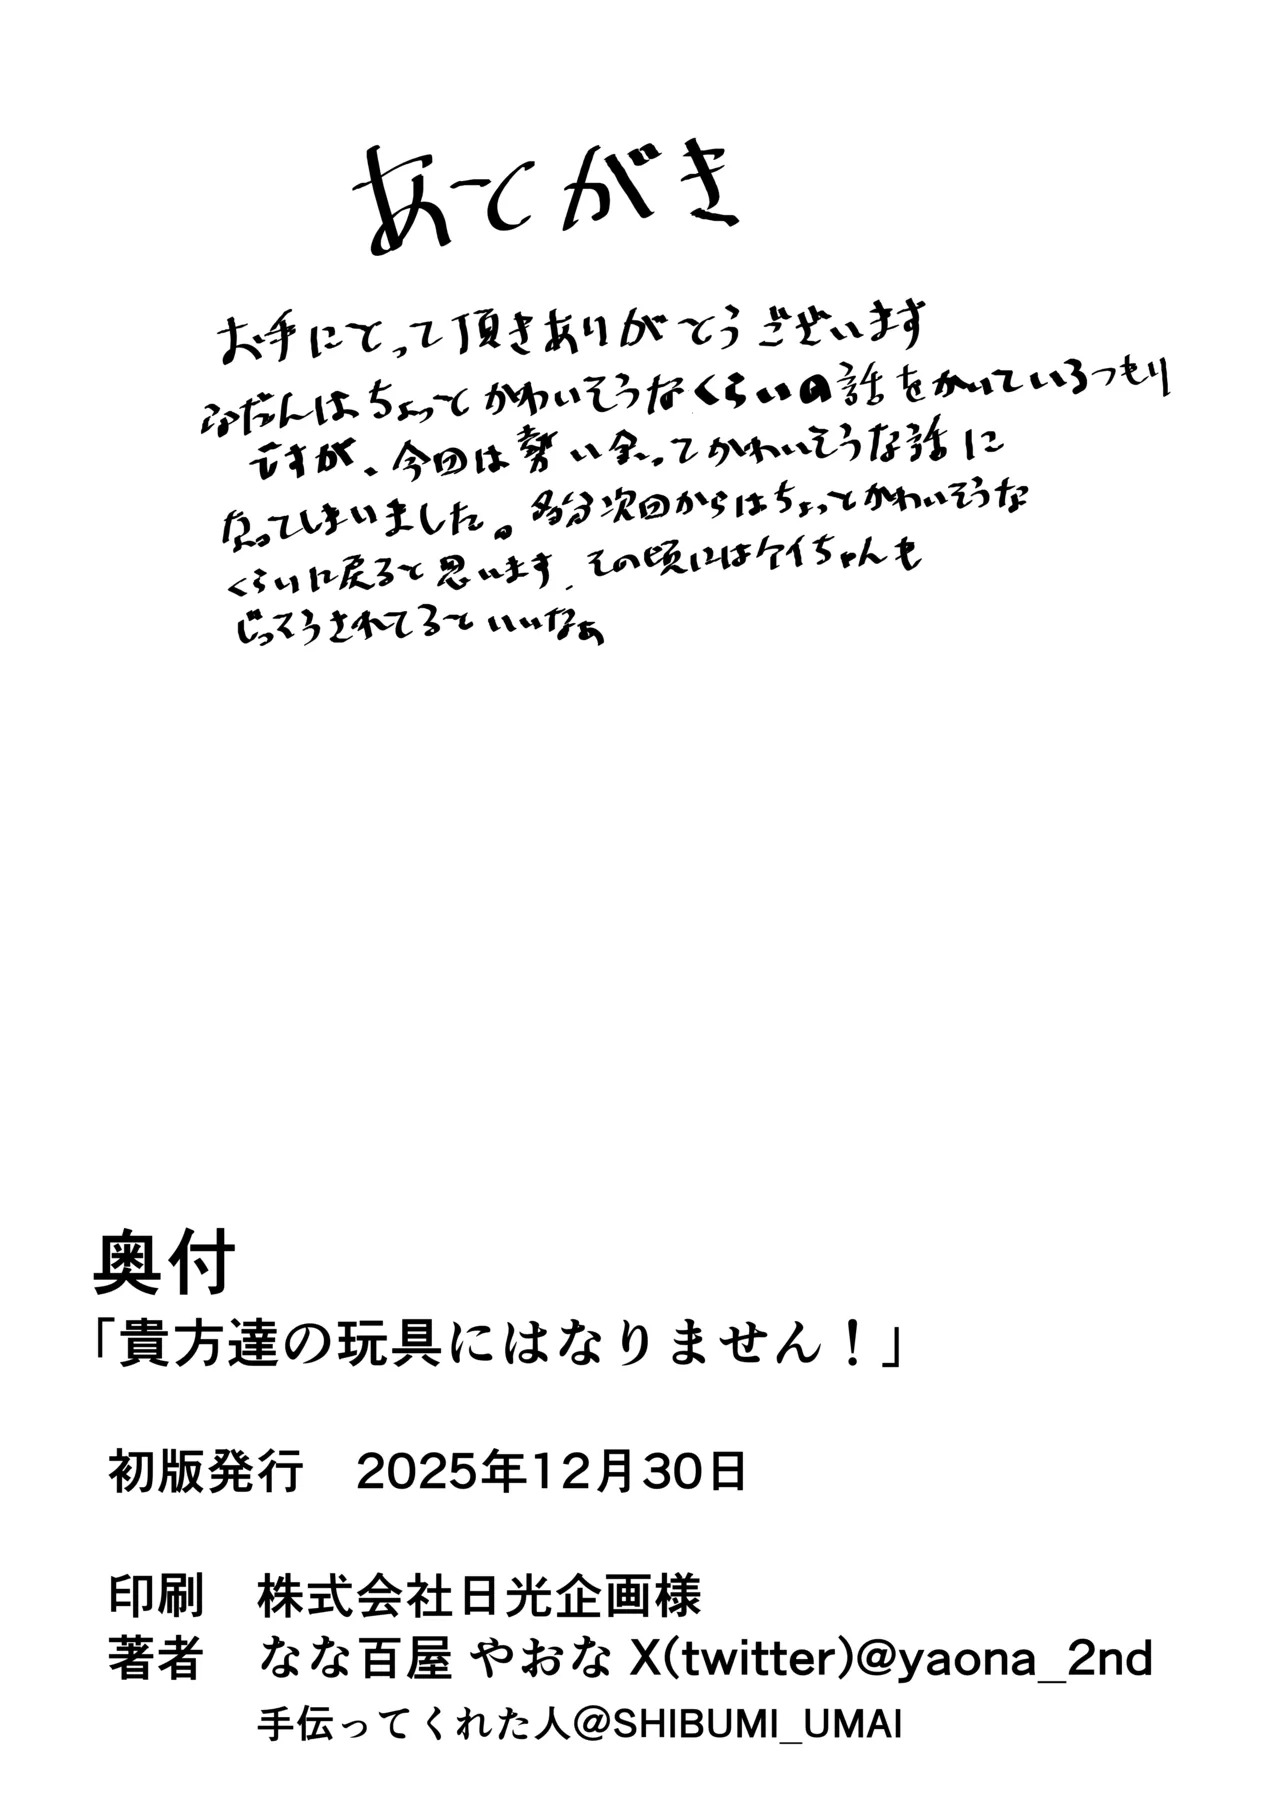 あとがき
お手にとって頂きありがとうございます
ふだんはちょっとかわいそうなくらいの話をかいているつもり
ですが、今回は勢い余ってかわいそうな話に
なってしまいました。多分次回からはちょっとかわいそうな
くらいに戻ると思います、その頃にはケイちゃんも
じっそうされてるといいなぁ
奥付
「貴方達の玩具にはなりません！」
初版発行　2025年12月30日
印刷　株式会社日光企画様
著者　なな百屋 やおな X(twitter)@yaona_2nd
手伝ってくれた人@SHIBUMI_UMAI